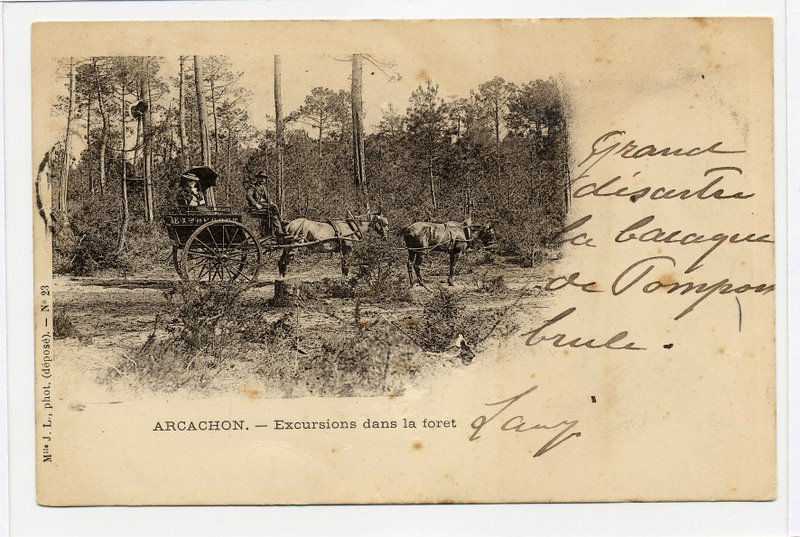 Grand
désastre
la baraque
de Pompon
brule.
ARCACHON. — Excursions dans la foret
Mlle J. L., phot. (déposé). — No 23